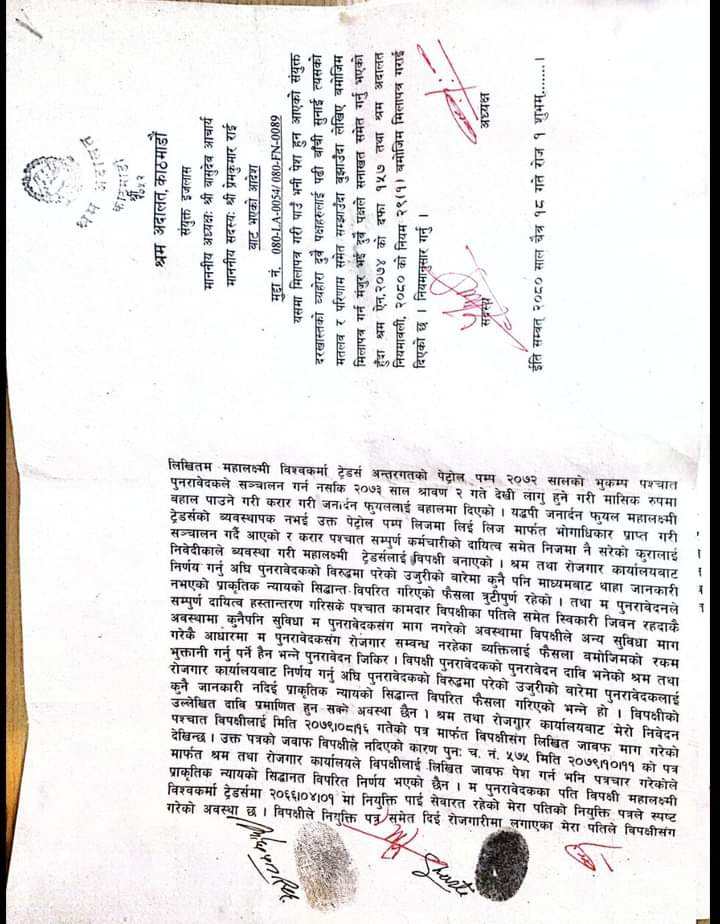 श्रम अदालत
काठमाडौं
श्रम अदालत, काठमाडौं
संयुक्त इजलास
माननीय अध्यक्षः श्री वासुदेव आचार्य
माननीय सदस्यः श्री प्रेमकुमार राई
बाट भएको आदेश
मुद्दा नं. 080-LA-0054/ 080-FN-0089
यसमा मिलापत्र गरी पाउँ भनी पेश हुन आएको संयुक्त
दरखास्तको व्यहोरा दुवै पक्षहरुलाई पढी बाँची सुनाई त्यसको
मतलव र परिणाम समेत सम्झाउँदा बुझाउँदा लेखिए बमोजिम
मिलापत्र गर्न मंजुर भई दुवै पक्षले सनाखत समेत गर्नु भएको
हुँदा श्रम ऐन,२०७४ को दफा १५७ तथा श्रम अदालत
नियमावली, २०८० को नियम २९(१) बमोजिम मिलापत्र गराई
दिएको छ । नियमानुसार गर्नु ।
सदस्य
अध्यक्ष
ईति सम्वत् २०८० साल चैत्र १८ गते रोज १ शुभम्.......।
लिखितम महालक्ष्मी विश्वकर्मा ट्रेडर्स अन्तरगतको पेट्रोल पम्प २०७२ सालको भुकम्प पश्चात
पुनरावेदकले सञ्चालन गर्न नसकि २०७३ साल श्रावण २ गते देखी लागु हुने गरी मासिक रुपमा
बहाल पाउने गरी करार गरी जनार्दन फुयललाई बहालमा दिएको । यद्धपी जनार्दन फुयल महालक्ष्मी
ट्रेडर्सको ब्यवस्थापक नभई उक्त पेट्रोल पम्प लिजमा लिई लिज मार्फत भोगाधिकार प्राप्त गरी
सञ्चालन गर्दै आएको र करार पश्चात सम्पुर्ण कर्मचारीको दायित्व समेत निजमा नै सरेको कुरालाई
निवेदीकाले ब्यवस्था गरी महालक्ष्मी ट्रेडर्सलाई विपक्षी बनाएको । श्रम तथा रोजगार कार्यालयबाट
निर्णय गर्नु अघि पुनरावेदकको विरुद्धमा परेको उजुरीको बारेमा कुनै पनि माध्यमबाट थाहा जानकारी
नभएको प्राकृतिक न्यायको सिद्धान्त विपरित गरिएको फैसला त्रुटीपुर्ण रहेको । तथा म पुनरावेदनले
सम्पुर्ण दायित्व हस्तान्तरण गरिसके पश्चात कामदार विपक्षीका पतिले समेत स्विकारी जिवन रहदाकै
अवस्थामा कुनैपनि सुविधा म पुनरावेदकसंग माग नगरेको अवस्थामा विपक्षीले अन्य सुविधा माग
गरेकै आधारमा म पुनरावेदकसंग रोजगार सम्वन्ध नरहेका ब्यक्तिलाई फैसला बमोजिमको रकम
भुक्तानी गर्नु पर्ने हैन भन्ने पुनरावेदन जिकिर । विपक्षी पुनरावेदकको पुनरावेदन दावि भनेको श्रम तथा
रोजगार कार्यालयबाट निर्णय गर्नु अघि पुनरावेदकको विरुद्धमा परेको उजुरीको वारेमा पुनरावेदकलाई
कुनै जानकारी नदिई प्राकृतिक न्यायको सिद्धान्त विपरित फैसला गरिएको भन्ने हो । विपक्षीको
उल्लेखित दावि प्रमाणित हुन सक्ने अवस्था छैन । श्रम तथा रोजगार कार्यालयबाट मेरो निवेदन
पश्चात विपक्षीलाई मिति २०७९।०८।१६ गतेको पत्र मार्फत विपक्षीसंग लिखित जावफ माग गरेको
देखिन्छ । उक्त पत्रको जवाफ विपक्षीले नदिएको कारण पुनः च. नं. ५७५ मिति २०७९।१०।११ को पत्र
मार्फत श्रम तथा रोजगार कार्यालयले विपक्षीलाई लिखित जावफ पेश गर्न भनि पत्रचार गरेकोले
प्राकृतिक न्यायको सिद्धानत विपरित निर्णय भएको छैन । म पुनरावेदकका पति विपक्षी महालक्ष्मी
विश्वकर्मा ट्रेडर्समा २०६६।०४।०१ मा नियुक्ति पाई सेवारत रहेको मेरा पतिको नियुक्ति पत्रले स्पष्ट
गरेको अवस्था छ । विपक्षीले नियुक्ति पत्र समेत दिई रोजगारीमा लगाएका मेरा पतिले विपक्षीसंग